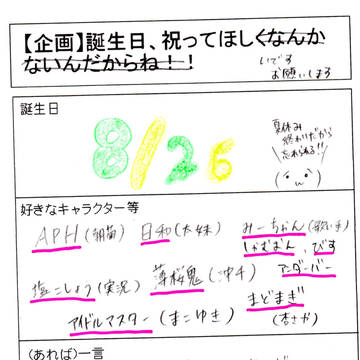 【企画】誕生日、祝ってほしくなんか
ないんだからね!!
いです
お願いします
誕生日
8/26
夏休み
終わりだから
忘れられる!!
好きなキャラクター等
APH(朝菊) 日和(太妹) みーちゃん(歌い手)
しゃむおん、びす
塩こしょう(実況) 薄桜鬼(沖千) アンダーバー
アイドルマスター(まこゆき) まどまぎ
(杏さや)
(あれば)一言